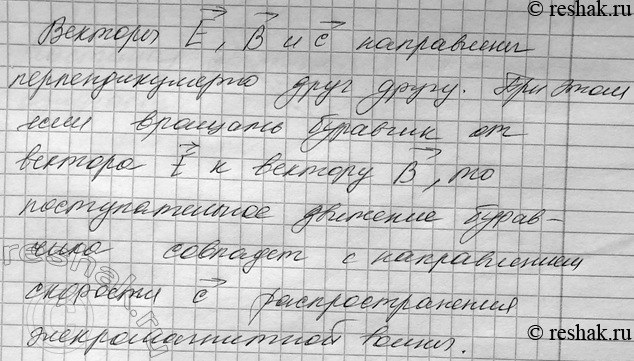 © reshak.ru
Векторы E⃗, B⃗ и c⃗ направлены
перпендикулярно друг другу. При этом
если вращать буравчик от
вектора E⃗ к вектору B⃗, то
поступательное движение бурав-
чика совпадет с направлением
скорости c⃗ распространения
электромагнитной волны.
reshak.ru
© reshak.ru